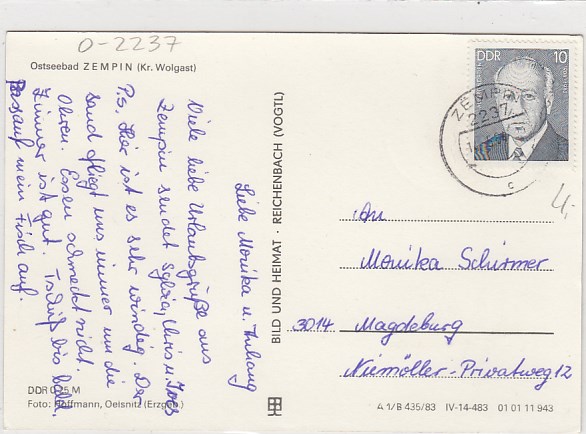 0-2237
Ostseebad ZEMPIN (Kr. Wolgast)
Liebe Monika u. Anhang
Viele liebe Urlaubsgrüße aus
Zempin sendet Sylvia, Chris u. Ines
P.s. Hier ist es sehr windig. Der
Sand fliegt uns immer um die
Ohren. Essen schmeckt nicht.
Zimmer ist gut. Tschüß bis bald.
Pass auf mein Fisch auf.
DDR 0,25 M
Foto: Hoffmann, Oelsnitz (Erzgeb.)
BILD UND HEIMAT · REICHENBACH (VOGTL)
DDR 10
ZEMPIN
2237
c
4,-
An
Monika Schirmer
3014 Magdeburg
Niemöller-Privatweg 12
A 1/B 435/83 IV-14-483 01 01 11 943